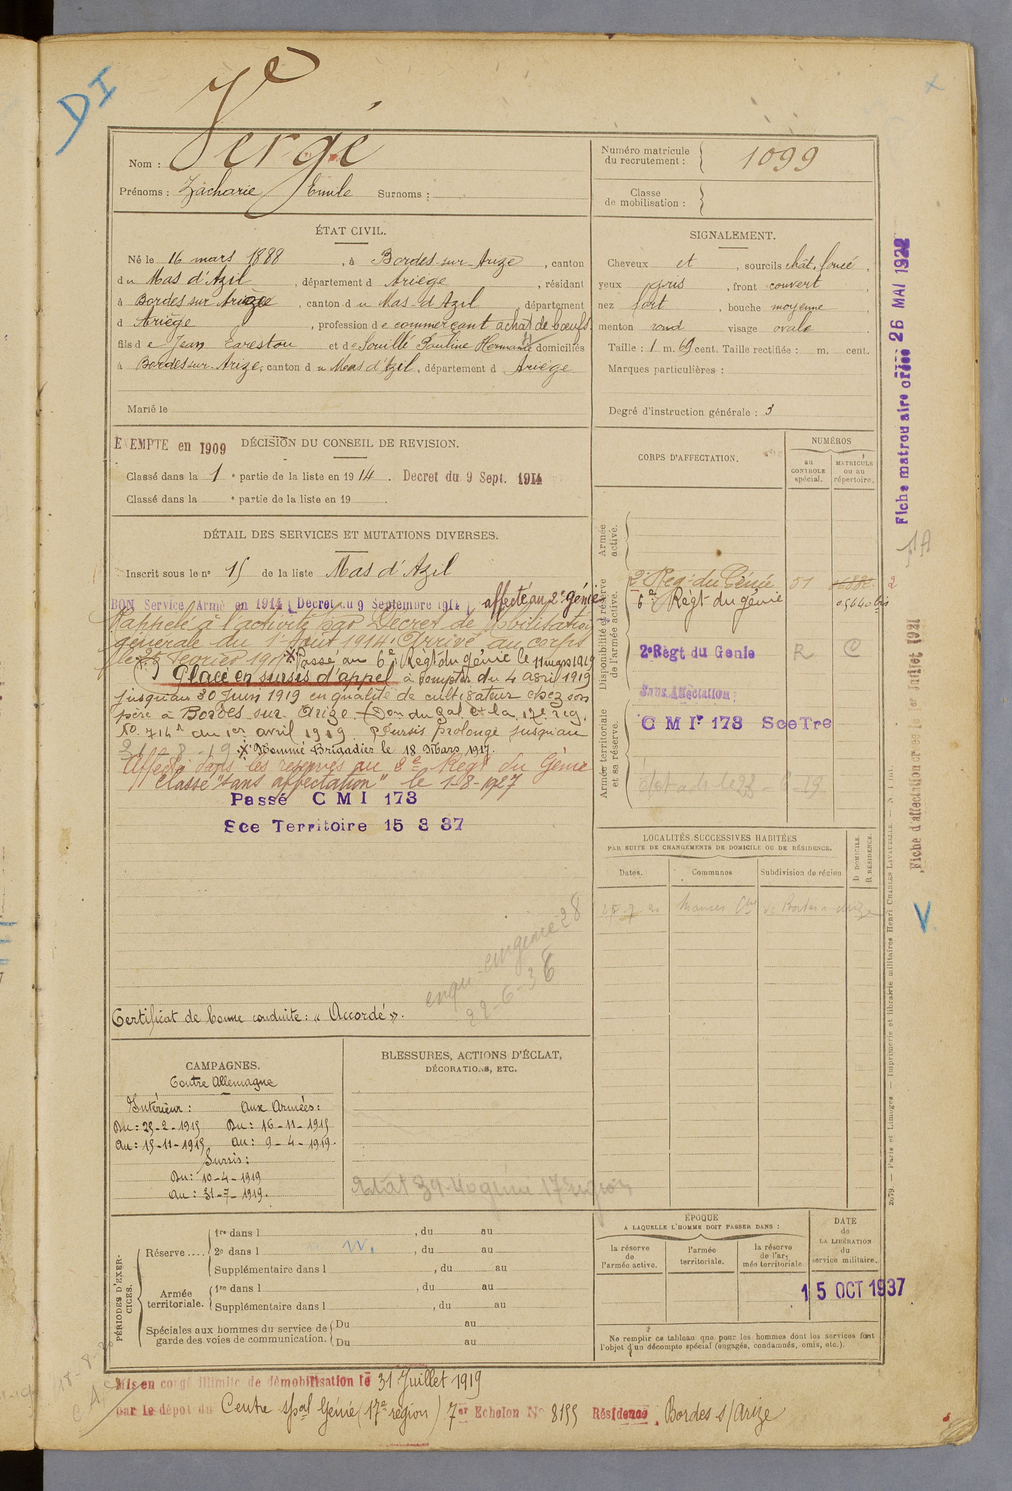 DI
Nom : Vergé
Prénoms : Zacharie Emile Surnoms :
Numéro matricule du recrutement : 1099
Classe de mobilisation :
ÉTAT CIVIL.
Né le 16 mars 1888, à Bordes-sur-Arize, canton
du Mas d'Azil, département d Ariège, résidant
à Bordes sur Arize, canton du Mas-d'Azil, département
d Ariège, profession de commerçant achat de bœufs
fils de Jean et de Pauline domiciliés
à Bordes sur Arize, canton du Mas d'Azil, département d Ariège
Marié le
SIGNALEMENT.
Cheveux et, sourcils chât. foncé,
yeux gris, front couvert,
nez fort, bouche moyenne,
menton rond visage ovale
Taille : 1 m. 69 cent. Taille rectifiée : m. cent.
Marques particulières :
Degré d'instruction générale : 3
EXEMPTE en 1909 DÉCISION DU CONSEIL DE REVISION.
Classé dans la 1e partie de la liste en 1914. Decret du 9 Sept. 1914
Classé dans la e partie de la liste en 19
DÉTAIL DES SERVICES ET MUTATIONS DIVERSES.
Inscrit sous le n° 15 de la liste Mas d'Azil
BON Service Armé en 1914 (Decret du 9 Septembre 1914) affecté au 2e génie
Rappelé à l'activité par Décret de Mobilisation
générale du 1er Août 1914. Arrivé au corps
le 25 février 1915 Passé au 6e Régt du génie le 11 mars 1919
Placé en sursis d'appel à compter du 4 avril 1919
jusqu'au 30 Juin 1919 en qualité de cultivateur chez son
père à Bordes sur Arize. (Don du Gal Ct la 17e reg.
No 714 du 1er avril 1919. Sursis prolongé jusqu'au
31-8-19. Nommé Brigadier le 18 Mars 1917.
Affecté dans les réserves au 2e Régt du Génie
Classé "sans affectation" le 1-8-1927
Passé C M I 173
Sce Territoire 15 3 37
28
22-6-36
Certificat de bonne conduite : « Accordé ».
CORPS D'AFFECTATION.
NUMÉROS
au CONTROLE spécial.
MATRICULE ou au répertoire.
Armée active.
Disponibilité et réserve de l'armée active.
2e Régt du Génie 51
6e Régt du génie 05440 bis
2e Régt du Genie R C
Sans Affectation
C M Ir 173 Sce Tre
Armée territoriale et sa réserve.
LOCALITÉS SUCCESSIVES HABITÉES
PAR SUITE DE CHANGEMENTS DE DOMICILE OU DE RÉSIDENCE.
D. DOMICILE. R. RÉSIDENCE.
Dates. Communes Subdivision de région
CAMPAGNES.
Contre Allemagne
Intérieur : Aux Armées :
Du : 25-2-1915 Du : 16-11-1915
Au : 15-11-1915 Au : 9-4-1919.
Sursis :
Du : 10-4-1919
au : 31-7-1919.
BLESSURES, ACTIONS D'ÉCLAT,
DÉCORATIONS, ETC.
PÉRIODES D'EXERCICES.
Réserve.... 1re dans l, du au
2e dans l, du au
Supplémentaire dans l, du au
Armée territoriale. 1re dans l, du au
Supplémentaire dans l, du au
Spéciales aux hommes du service de garde des voies de communication. Du au
Du au
ÉPOQUE
A LAQUELLE L'HOMME DOIT PASSER DANS :
la réserve de l'armée active.
l'armée territoriale.
la réserve de l'armée territoriale.
DATE de LA LIBÉRATION du service militaire.
15 OCT 1937
Ne remplir ce tableau que pour les hommes dont les services font l'objet d'un décompte spécial (engagés, condamnés, omis, etc.).
Mis en congé illimité de démobilisation le 31 Juillet 1919
par le dépôt du Centre Spal Génie (17e région) 7er Echelon No 8155 Résidence Bordes s/Arize
Fiche matriculaire créée 26 MAI 1922
Fiche d'affectation créée le 1er Juillet 1921
2079. — Paris et Limoges. — Imprimerie et librairie militaires Henri CHARLES-LAVAUZELLE.